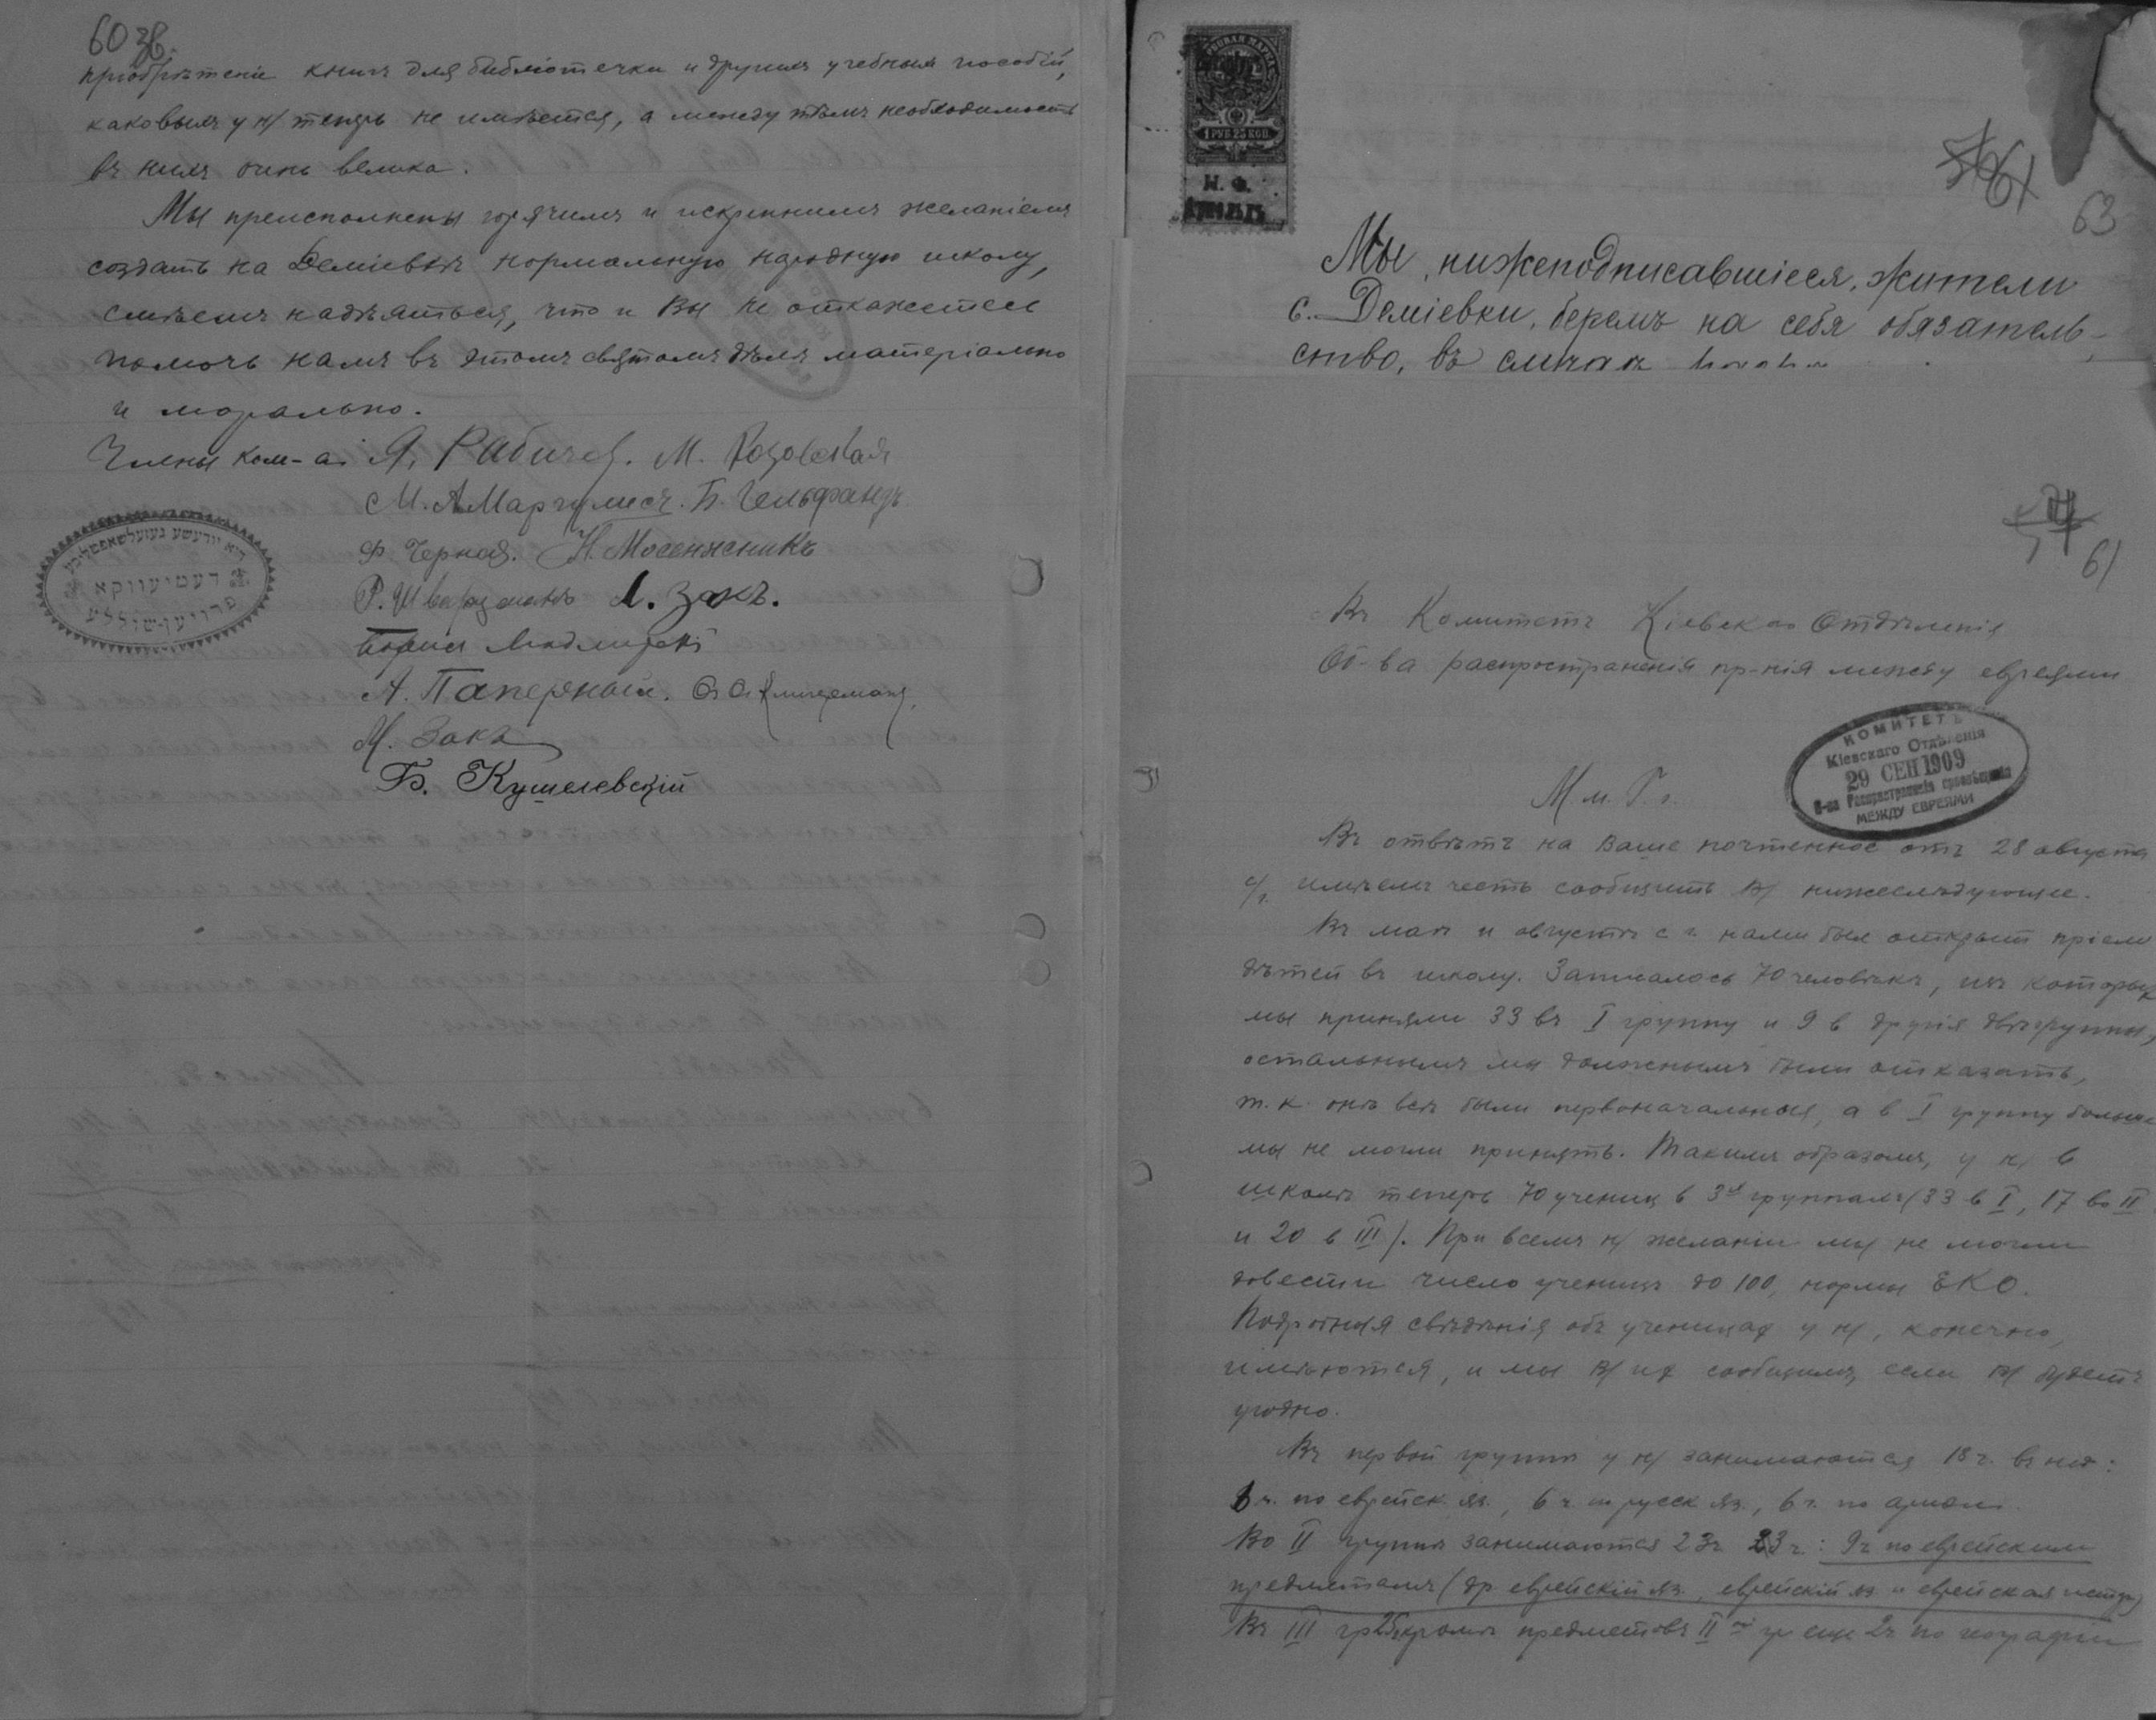 60 зв.
пріобрѣтеніе книгъ для библіотечки и другихъ учебныхъ пособій,
каковыхъ у н/ теперь не имѣется, а между тѣмъ необходимость
въ нихъ очень велика.
Мы преисполнены горячимъ и искреннимъ желаніемъ
создать на Деміевкѣ нормальную народную школу,
смѣемъ надѣяться, что и Вы не откажетесь
помочь намъ въ этомъ святомъ дѣлѣ матеріально
и морально.
Члены ком-а: Я. Рабичев. М. Розовская
М. А Маргулисъ. Б. Гельфандъ
Ф. Черная. Н. Мосенжсникъ
Р. Шварцманъ Л. Закъ.
Борисъ
А. Паперный. Клигерманъ.
М. Закъ
Б. Кушелевскій
דעמיעווקא
פרויען-שוללע
1 РУБ 25 КОП.
61
63
Мы, нижеподписавшіеся, жители
с. Деміевки, беремъ на себя обязатель-
ство, въ случаѣ
61
Въ Комитетъ Кіевскаго Отдѣленія
Об-ва распространенія пр-нія между евреями
КОМИТЕТЪ
Кіевскаго Отдѣленія
29 СЕН 1909
О-ва Распространенія просвѣщенія
МЕЖДУ ЕВРЕЯМИ
М м. Г г.
Въ отвѣтъ на Ваше почтенное отъ 28 августа
с/г. имѣемъ честь сообщить В/ нижеслѣдующее.
Въ маѣ и августѣ с г. нами был открыт пріем
дѣтей въ школу. Записалось 70 человѣкъ, изъ которых
мы приняли 33 въ I группу и 9 в другія двѣ группы,
остальнымъ мы должны были отказать,
т. к. онѣ всѣ были первоначальныя, а в I группу больше
мы не могли принять. Такимъ образомъ, у н/ в
школѣ теперь 70 учениц в 3х группахъ (33 в I, 17 во II
и 20 в III). При всемъ н/ желаніи мы не могли
довести число ученицъ до 100, нормы ЕКО.
Подробныя свѣдѣнія объ ученицах у н/, конечно,
имѣются, и мы В/ их сообщимъ, если В/ будетъ
угодно.
Въ первой группѣ у н/ занимаются 18 ч. въ нед:
6 ч. по еврейск. яз., 6 ч. по русск яз., 6 ч. по ариѳм.
Во II группѣ занимаются 23ч 23 ч: 9ч по еврейскимъ
предметамъ (др еврейскій яз, еврейскій яз и еврейская истор)
Въ III гр 25ч кромѣ предметовъ IIой гр еще 2ч по географіи